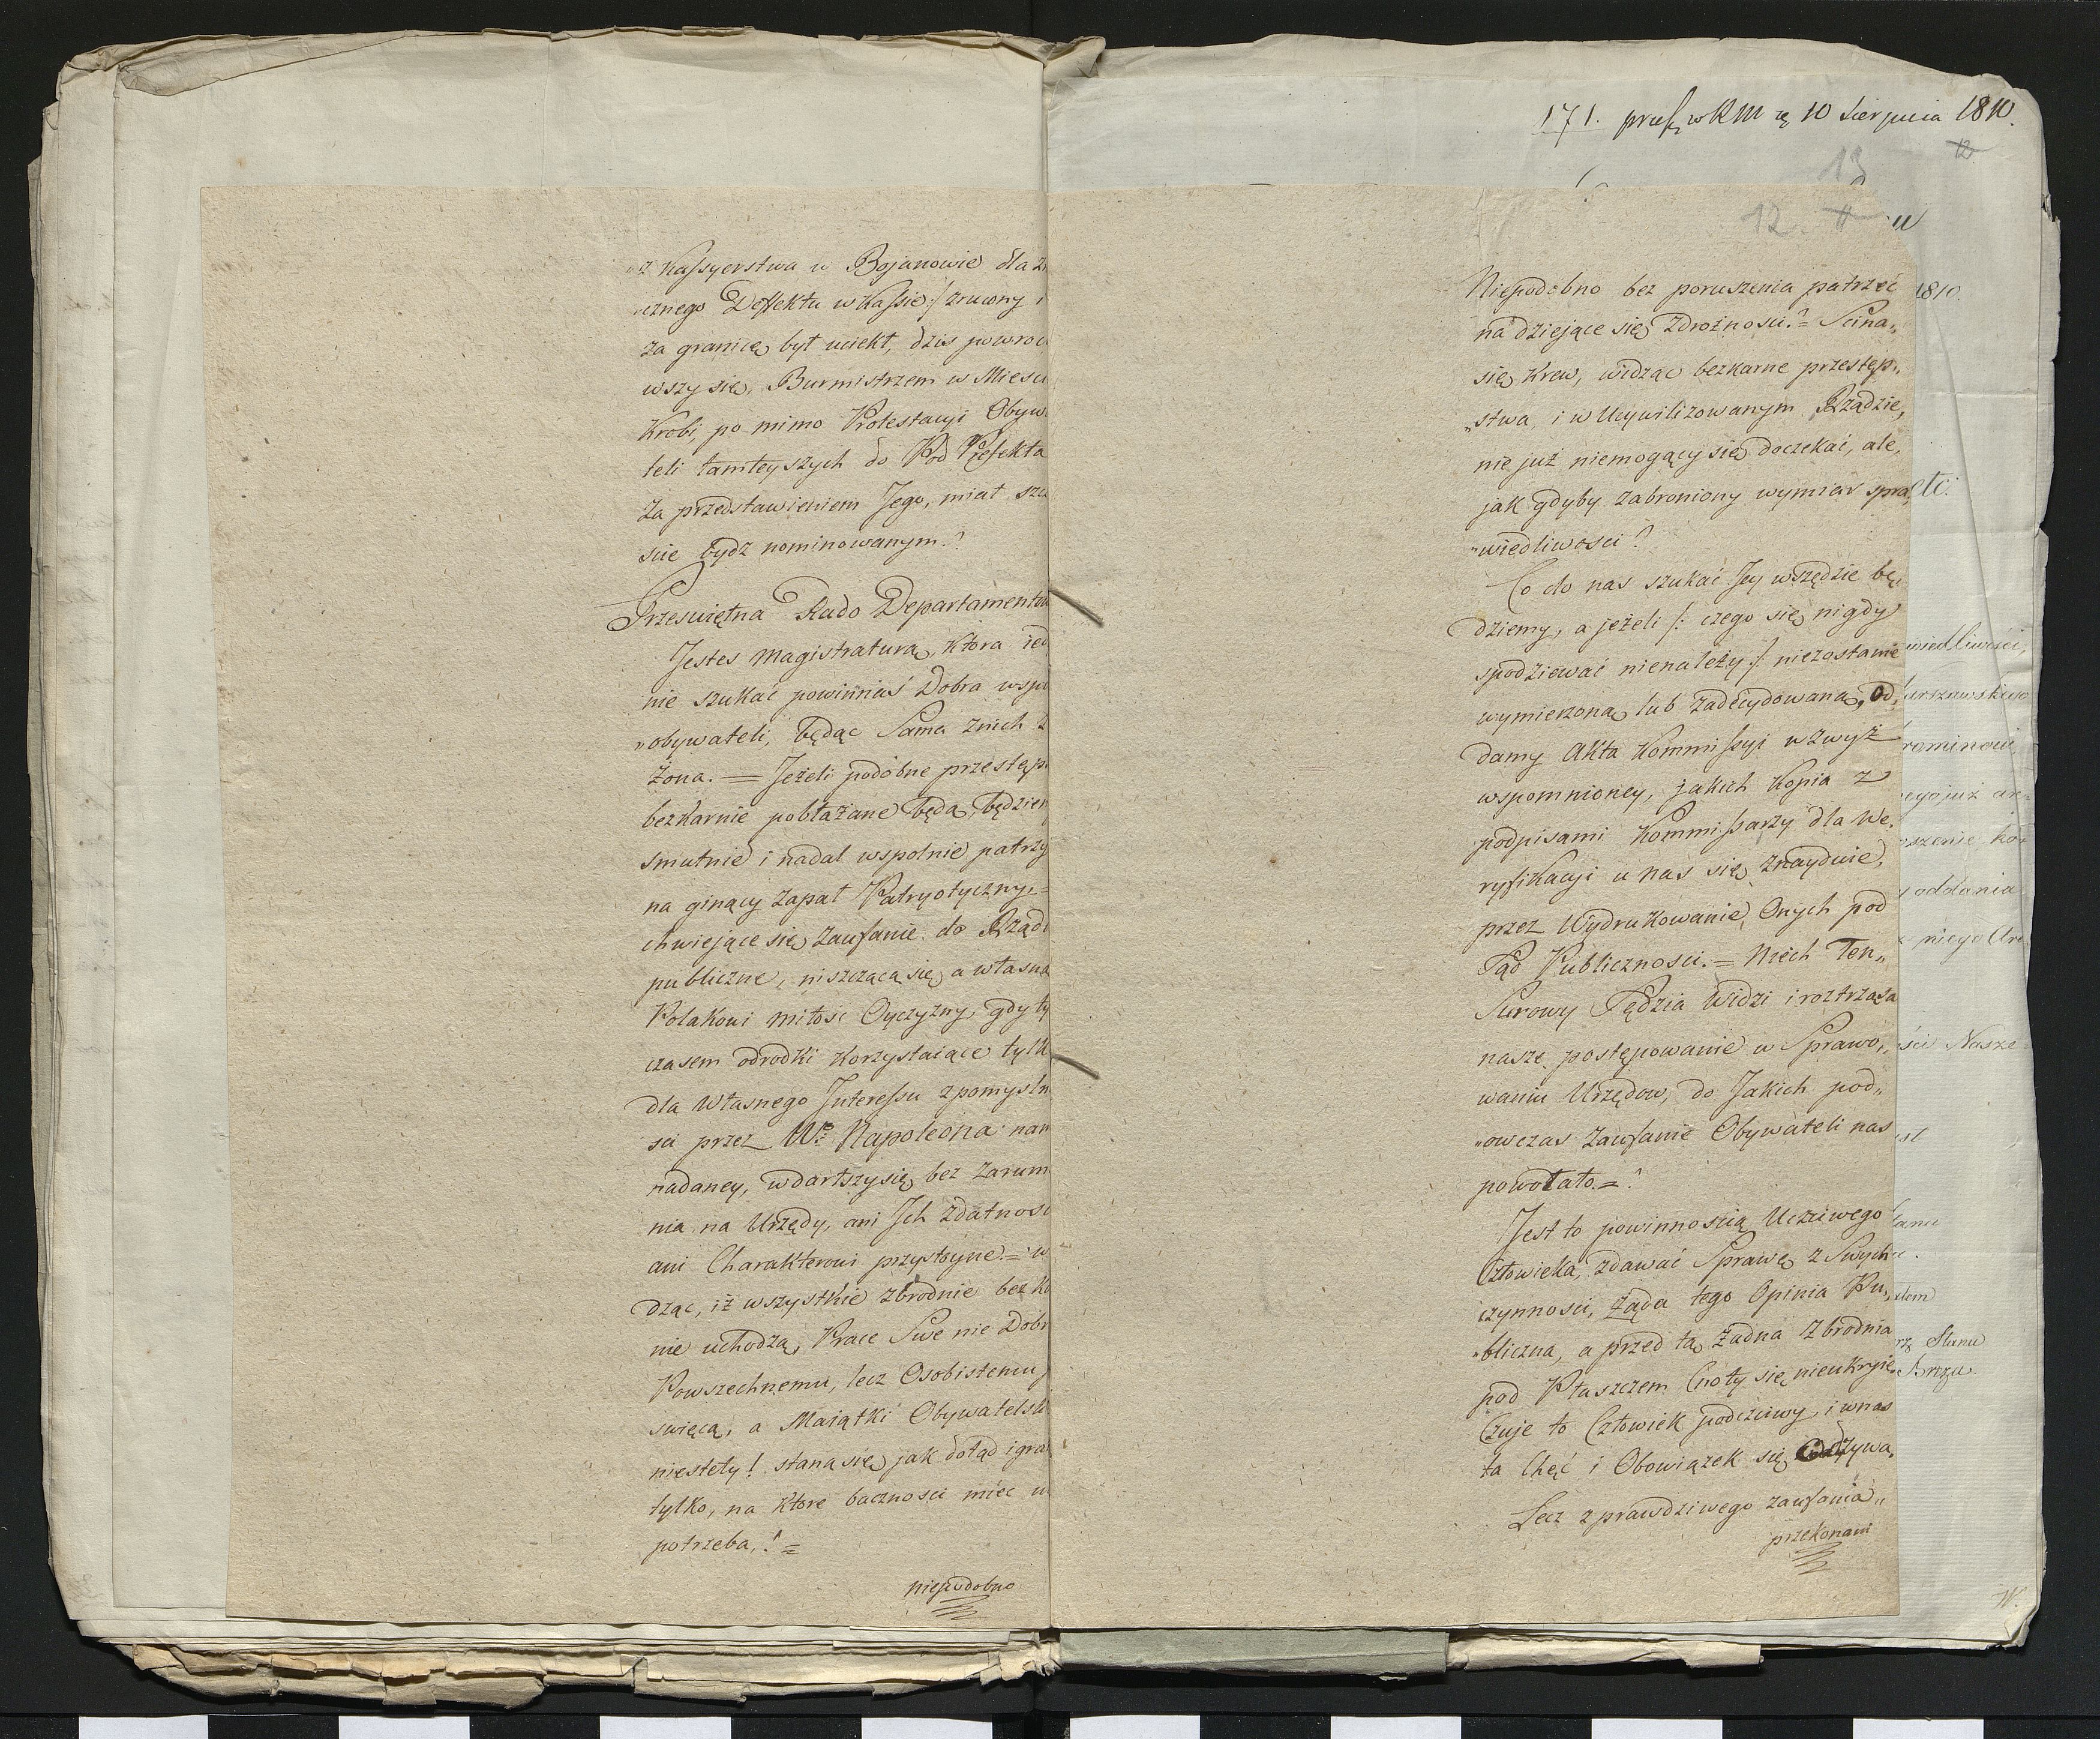 "z Kassyerstwa w Bojanowie dla
cznego Deffektu w Kassie /: zrucony
za granicę był uciekł, dziś powroci
wszy się, Burmistrzem w Miesci
Krobi, po mimo Protestacyi Obywa
teli tamteyszych do Pod Prefekta
za przedstawieniem Jego, miał szc
scie bydz nominowanym?
Przeswiętna Rado Departamentow
Jestes Magistraturą, Ktora ied
nie szukać powinnaś Dobra wspó
"obywateli, będąc Sama z nich
żona. = Jeżeli podobne przestęp
bezkarnie pobłażane będą, będziem
smutnie i nadal wspolnie patrzy
na ginący zapał Patryotyczny, =
chwiejące się zaufanie do Rządu
publiczne, niszczącą się a własną
Polakowi miłosc Oyczyzny, gdy ty
czasem odrodki korzystaiące tylk
dla Własnego Interessu z pomysln
sci przez W? Napoleona nam
nadaney, wdarłszy się bez zarum
nia na Urzędy, ani Ich zdatnosc
ani Charakterowi przystoyne. = w
dząc, iż wszystkie zbrodnie bezka
nie uchodzą, Prace Swe nie Dobr
Powszechnemu, lecz Osobistemu p
święcą, a Maiątki Obywatelsk
niestety! staną się jak dotąd igra
tylko, na Ktore bacznosci miec
potrzeba,! =
niepodobno
171. w KM 10 Sierpnia 1810.
12
13
12. 11
Niepodobno bez poruszenia patrzeć
na dziejące się zdrożnosci.? = Scina„
się Krew, widząc bezkarne przestęp„
"stwa, i w Ucywilizowanym Rządzie,
nie już niemogący się doczekać, ale,
jak gdyby zabroniony wymiar spra„
"wiedliwosci?
Co do nas szukać Jey wszędzie bę„
dziemy, a jeżeli /: czego się nigdy
spodziewać nienależy :/ niezostanie
wymierzoną lub zadecydowaną, Od„
damy Akta Kommissyi wzwyż
wspomnioney, jakich Kopia z
podpisami Kommissarzy dla We„
ryfikacyi u nas się znayduie,
przez Wydrukowanie, Onych pod
Sąd Publicznosci. = Niech Ten„
Surowy Sędzia widzi i roztrząsa
nasze postępowanie w Sprawo„
waniu Urzędow, do Jakich pod„
"owczas zaufanie Obywateli nas
powołało. = ?
Jest to powinnoscią Uczciwego
Człowieka, zdawać Sprawę z Swych
czynnosci, żąda tego Opinia Pu„
"bliczna, a przed tą żadna Zbrodnia
pod Płaszczem Cnoty się nieukryie,
Czuje to Człowiek podcziwy, i w nas
ta Chęć i Obowiązek się Odzywa,
Lecz z prawdziwego zaufania„
przekonani
1810.
wiedliwości,
arszawskiego
oddania
ści Nasze
Stanu